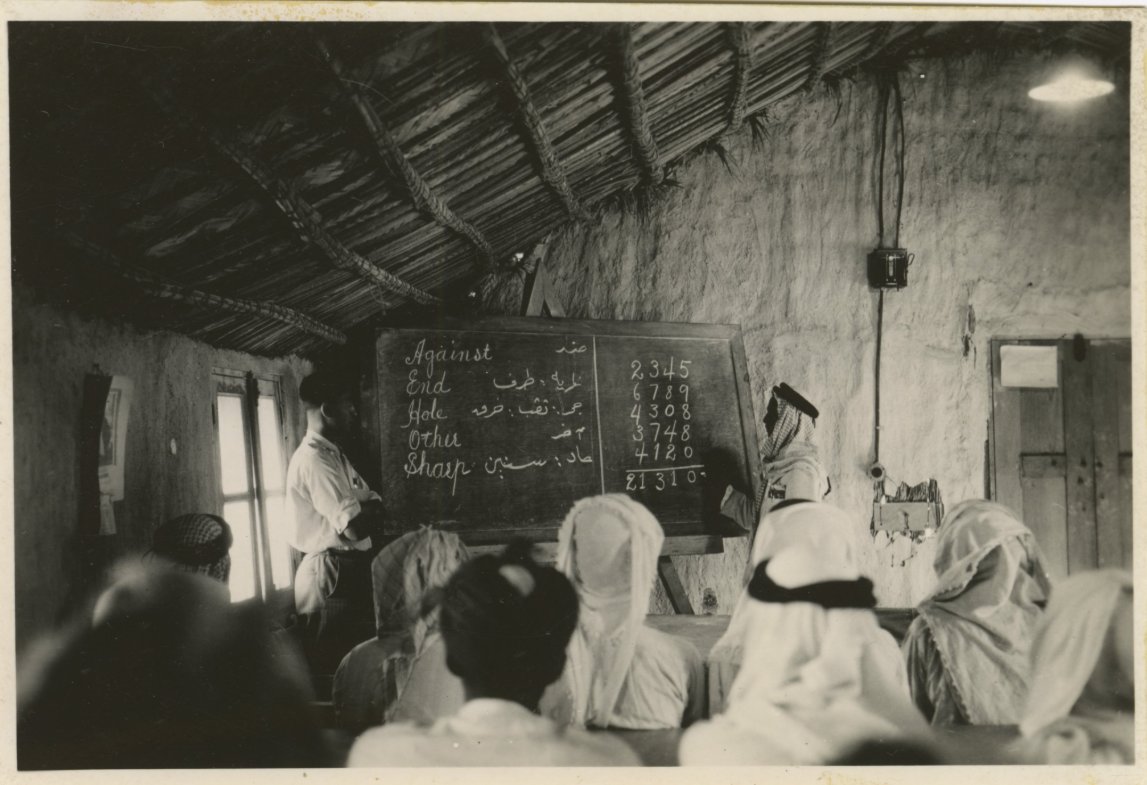 Against ضد
End نهاية : طرف
Hole جحر : ثقب : خرق
Other آخر
Sharp حاد : سنين
2345
6789
4308
3748
4120
21310